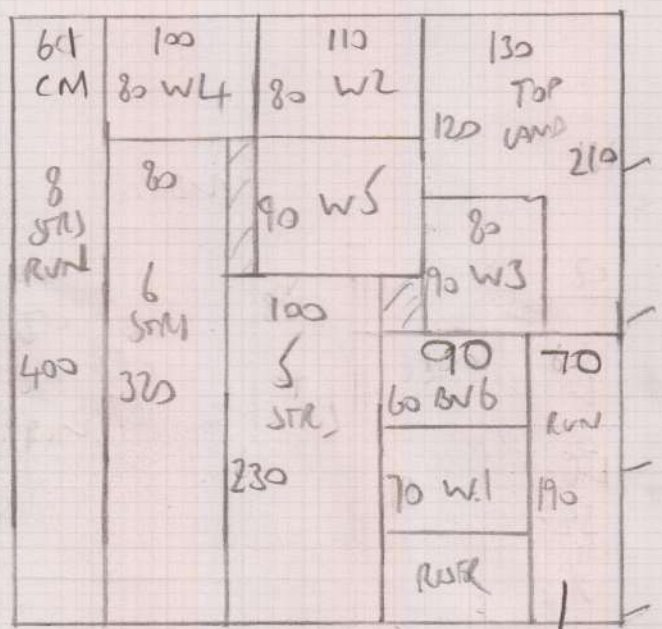 60
CM
8
STRS
RUN
400
100
80 W4
80
6
STRS
320
110
80 W2
90 W5
100
5
STR
230
130
TOP
120 LAND
210
80
90 W3
90
60 BN6
70 W.1
RISER
70
RUN
190